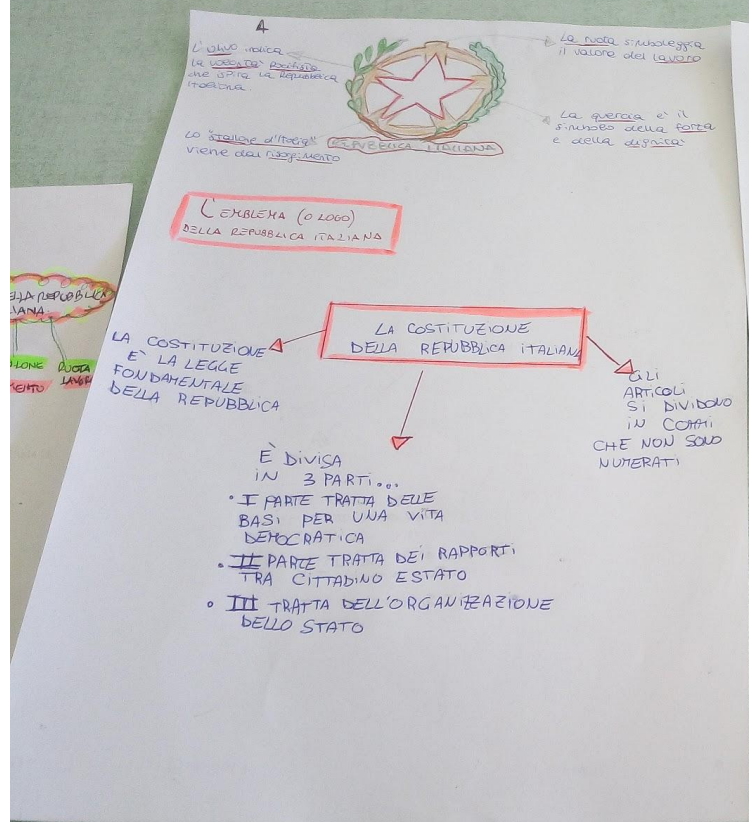 A
L'ulivo indica
la volontà pacifista
che ispira la Repubblica
italiana.
La ruota simboleggia
il valore del lavoro
Lo "stellone d'Italia"
viene dal risorgimento
La quercia e' il
simbolo della forza
e della dignità
REPUBBLICA ITALIANA
L'EMBLEMA (O LOGO)
DELLA REPUBBLICA ITALIANA
LA COSTITUZIONE
DELLA REPUBBLICA ITALIANA
LA COSTITUZIONE
E' LA LEGGE
FONDAMENTALE
DELLA REPUBBLICA
GLI
ARTICOLI
SI DIVIDONO
IN COMMI
CHE NON SONO
NUMERATI
È DIVISA
IN 3 PARTI...
• I PARTE TRATTA DELLE
BASI PER UNA VITA
DEMOCRATICA
• II PARTE TRATTA DEI RAPPORTI
TRA CITTADINO ESTATO
• III TRATTA DELL'ORGANIZZAZIONE
DELLO STATO
ELLA REPUBBLICA
IANA
LLONE RUOTA
MENTO LAVOR